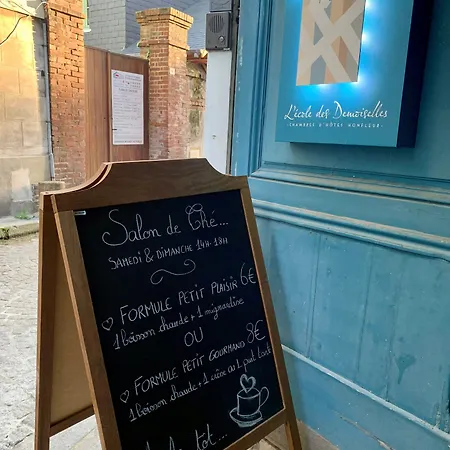 L'école des Demoiselles
CHAMBRES D'HÔTES HONFLEUR
Salon de Thé...
SAMEDI & DIMANCHE 14H-18H
FORMULE PETIT PLAISIR 6€
1 boisson chaude + 1 mignardise
OU
FORMULE PETIT GOURMAND 8€
1 boisson chaude + 1 crème au